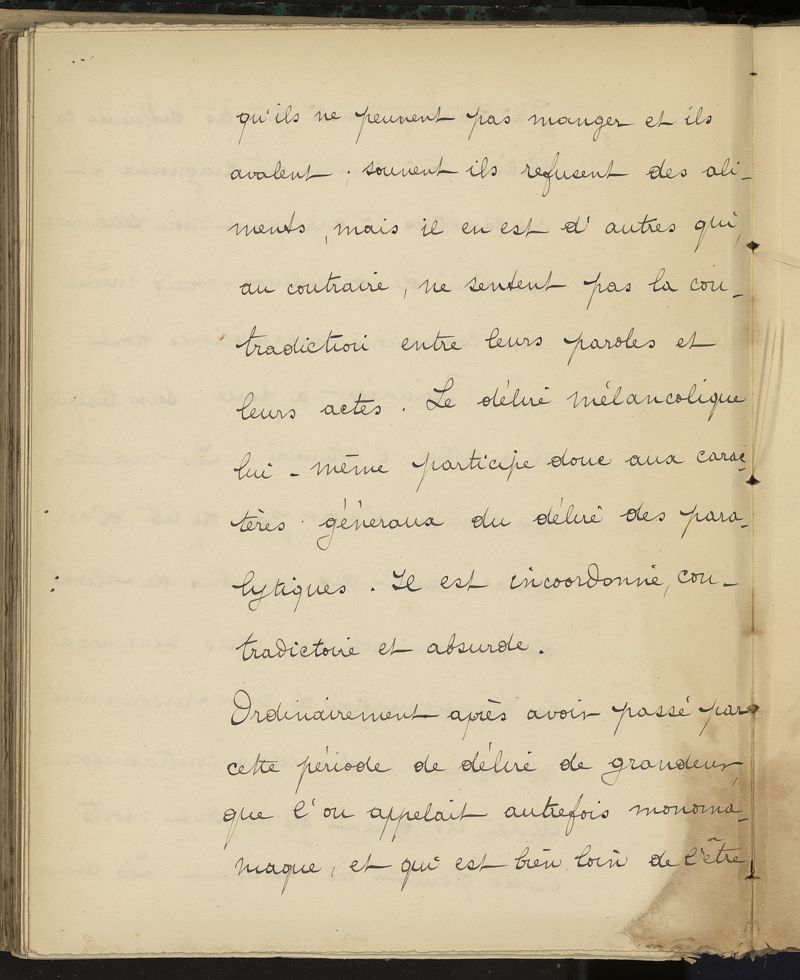 qu'ils ne peuvent pas manger et ils
avalent ; souvent ils refusent des ali-
ments, mais il en est d'autres qui,
au contraire, ne sentent pas la con-
tradiction entre leurs paroles et
leurs actes. Le délire mélancolique
lui-même participe donc aux carac-
tères généraux du délire des para-
lytiques. Il est incoordonné, con-
tradictoire et absurde.
Ordinairement après avoir passé par
cette période de délire de grandeur,
que l'on appelait autrefois monoma-
maque, et qui est bien loin de l'être